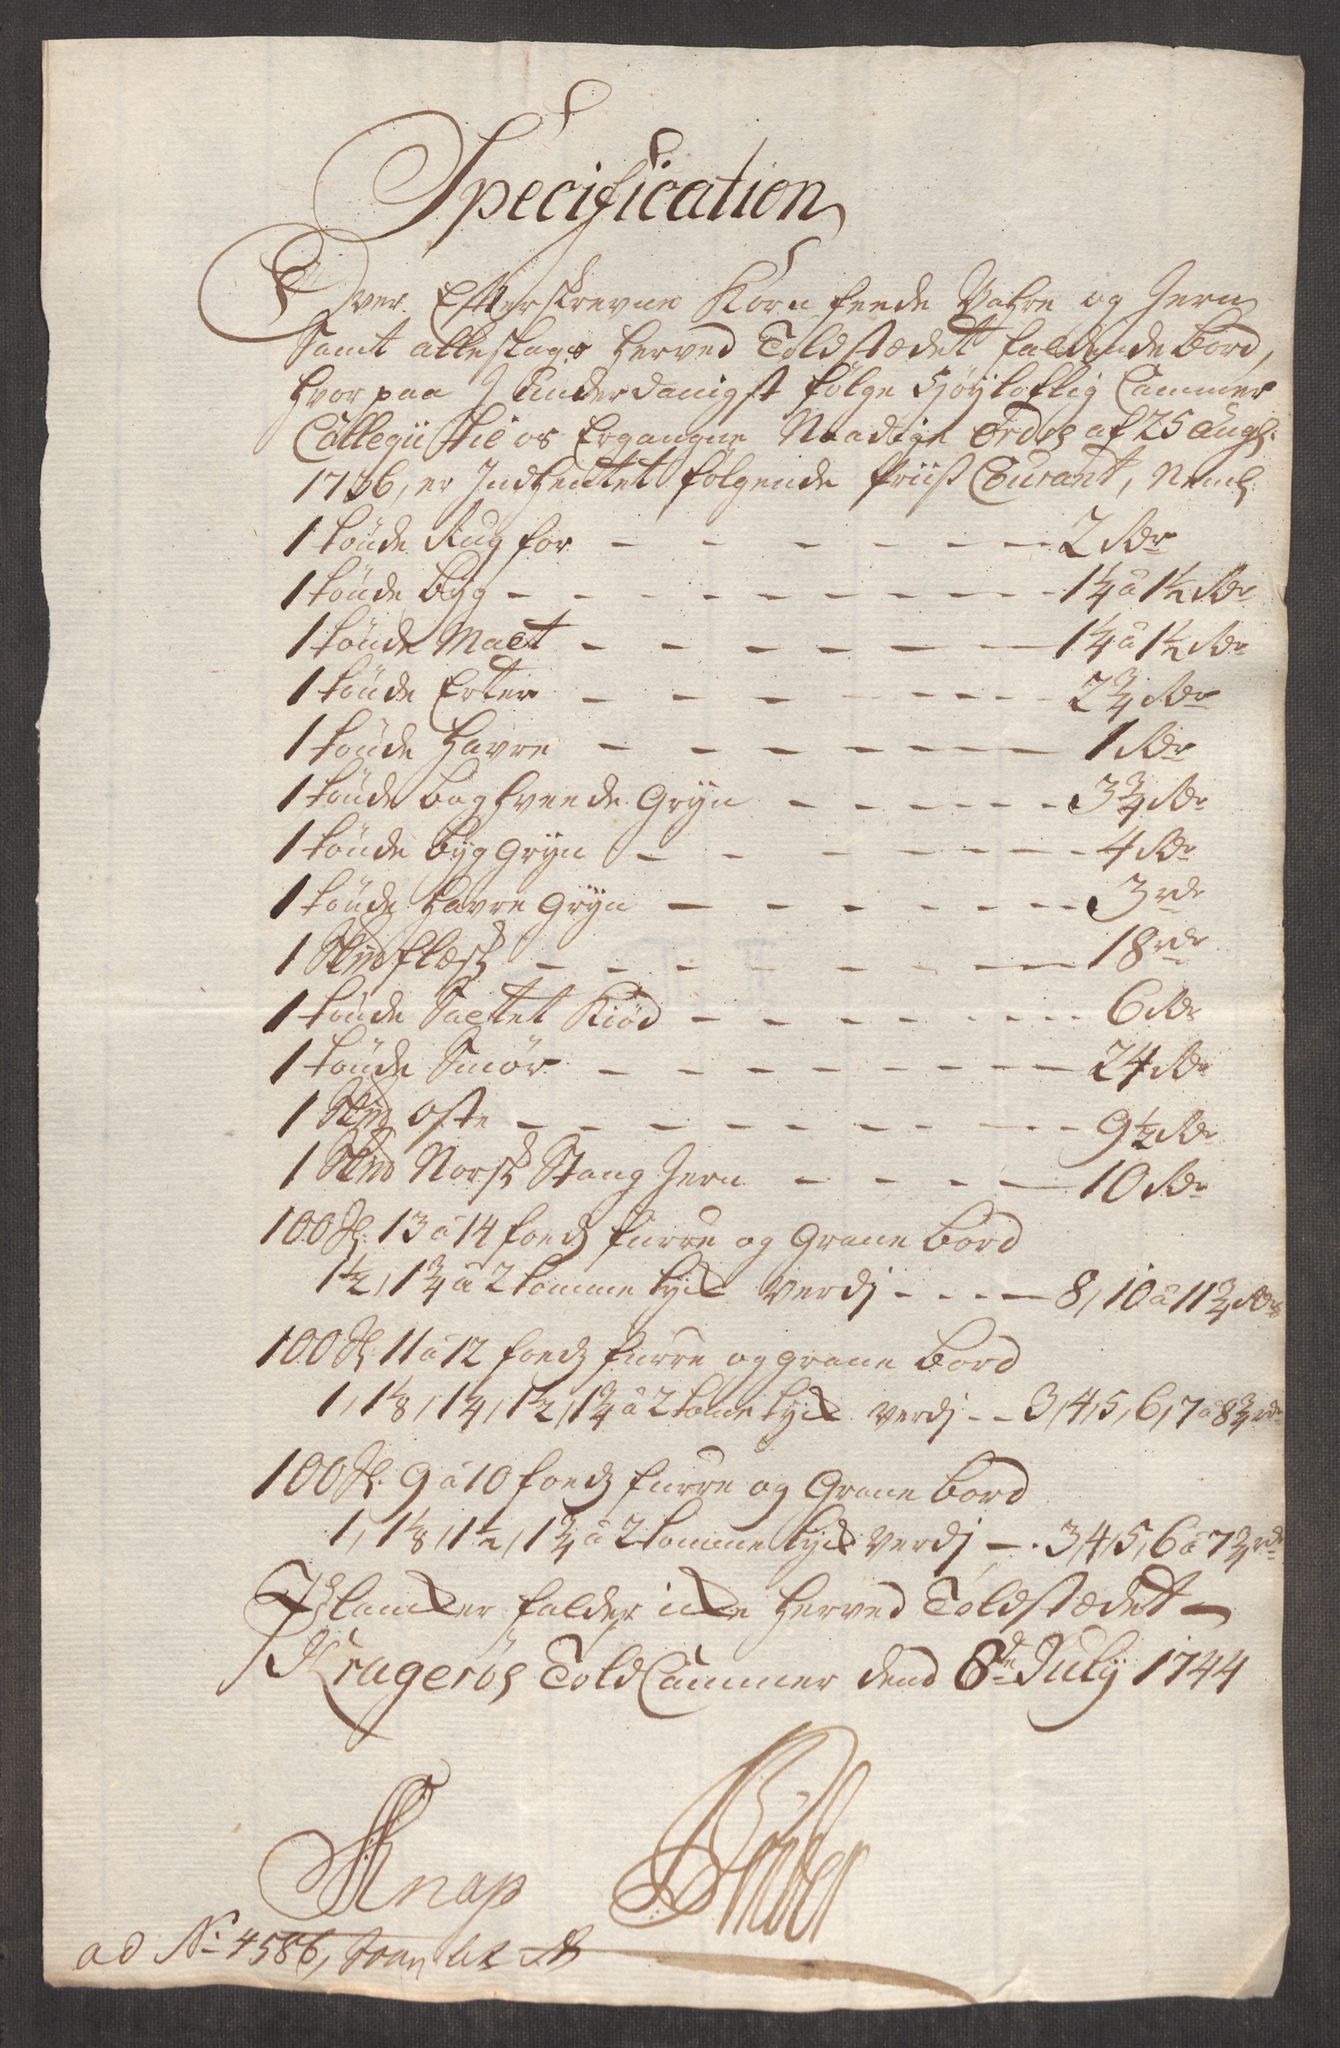 Specification
Over Efterskrevne Korn feede Vahre og Jern
Samt alleslags herved Toldstædet faldende bord,
hvorpaa I Underdanigst følge Høyloflig Cammer
Collegii til os Ergangne Naadige Ordre af 25 Aug:
1736, er Indhentet følgende Priis Courant, Neml:
1 tönde Rug for - - - - - - - 2 Rdr
1 tönde byg - - - - - - - - - 1¼ a 1½ Rdr
1 tönde Malt - - - - - - - 1¼ a 1½ Rdr
1 tönde Erter - - - - - - - 2¾ Rdr
1 tönde Havre - - - - - - - 1 Rdr
1 tönde boghvende Gryn - - - - - - 3¾ Rdr
1 tönde byg Gryn - - - - - - - 4 Rdr
1 tönde Havre Gryn - - - - - - - 3 rdr
1 Skpd flæsk - - - - - - - - 18 rdr
1 tönde Saltet Kiød - - - - - - - 6 Rdr
1 tönde Smør - - - - - - - - 24 Rdr
1 Skpd Oste - - - - - - - - - 9½ Rdr
1 Skpd Norsk Stang Jern - - - - - 10 Rdr
100 St: 13 a 14 foeds furre og Grane bord
1½, 1¾ a 2 tomme tyk verdj - - - - 8, 10 a 11¾ Rdr
100 St: 11 a 12 foeds furre og grane bord
1, 1⅛, 1¼, 1½, 1¾ a 2 tome tyk verdj - - 3, 4, 5, 6, 7 a 8¾ rdr
100 St: 9 a 10 foeds furre og Grane bord
1, 1⅛, 1½, 1¾ a 2 tomme tyk verdj - - 3, 4, 5, 6 a 7¾ rdr
Planker falder icke herved Toldstædet -
Kragerøs Told Cammer dend 8de July 1744
Knap
ad No: 4586,